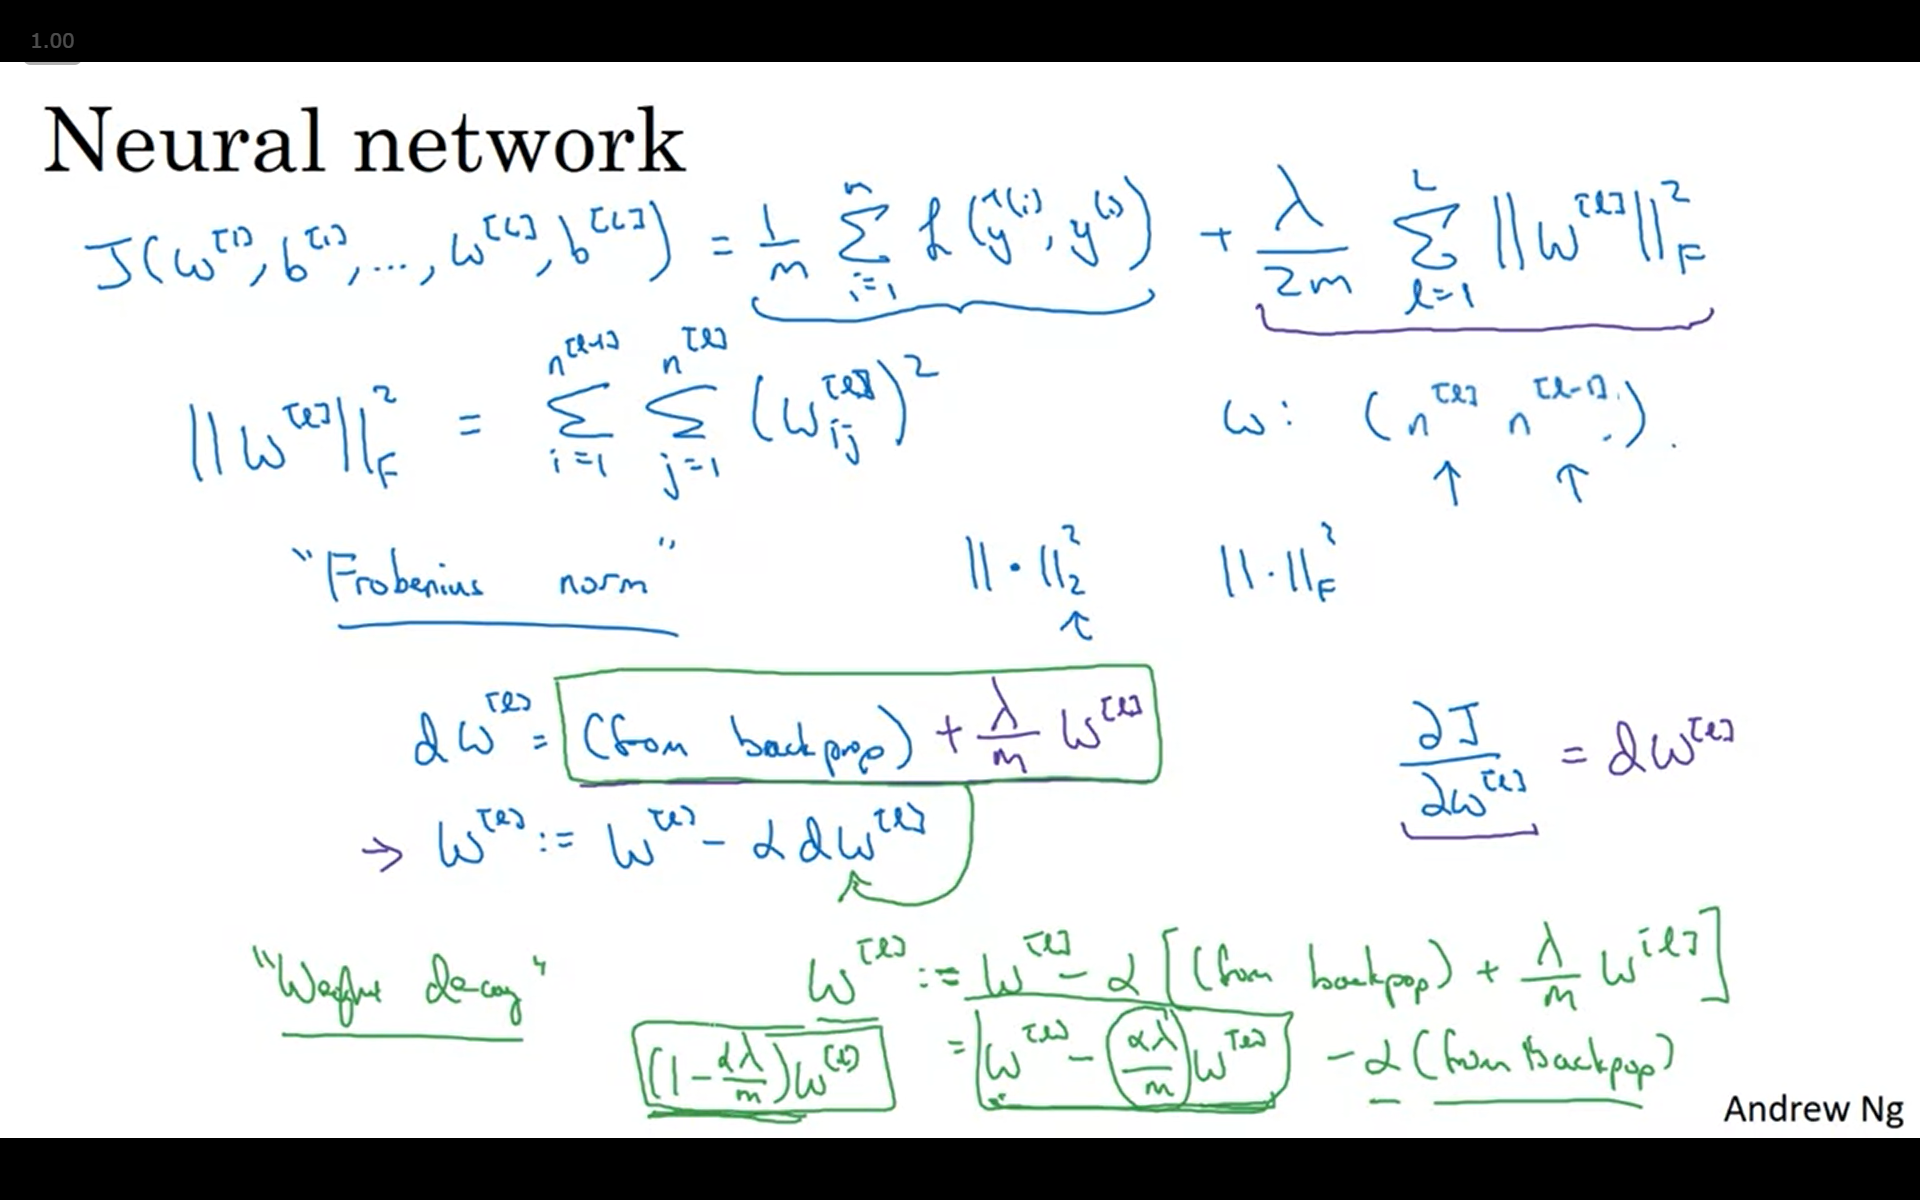 1.00
Neural network
J(w^[1], b^[1], ..., w^[L], b^[L]) = 1/m Σ_{i=1}^{m} ℒ(ŷ^(i), y^(i)) + λ/2m Σ_{l=1}^{L} ||w^[l]||_F^2
||w^[l]||_F^2 = Σ_{i=1}^{n^[l-1]} Σ_{j=1}^{n^[l]} (w_ij^[l])^2 w: (n^[l] n^[l-1]).
↑ ↑
"Frobenius norm" ||·||_2^2 ||·||_F^2
↑
dw^[l] = (from backprop) + λ/m w^[l] ∂J/∂w^[l] = dw^[l]
→ w^[l] := w^[l] - α dw^[l]
"Weight decay" w^[l] := w^[l] - α [(from backpop) + λ/m w^[l]]
(1 - αλ/m) w^[l] = w^[l] - αλ/m w^[l] - α (from backpop)
Andrew Ng